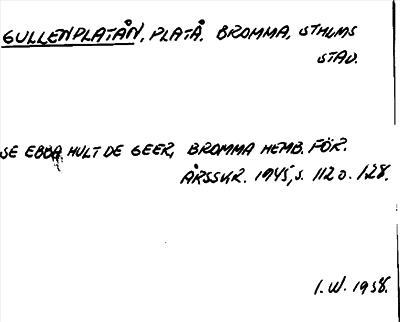 GULLENPLATÅN, PLATÅ. BROMMA, STHLMS
STAD.
SE EBBA HULT DE GEER, BROMMA HEMB. FÖR.
ÅRSSKR. 1945, S. 112 O. 128.
I. W. 1958.